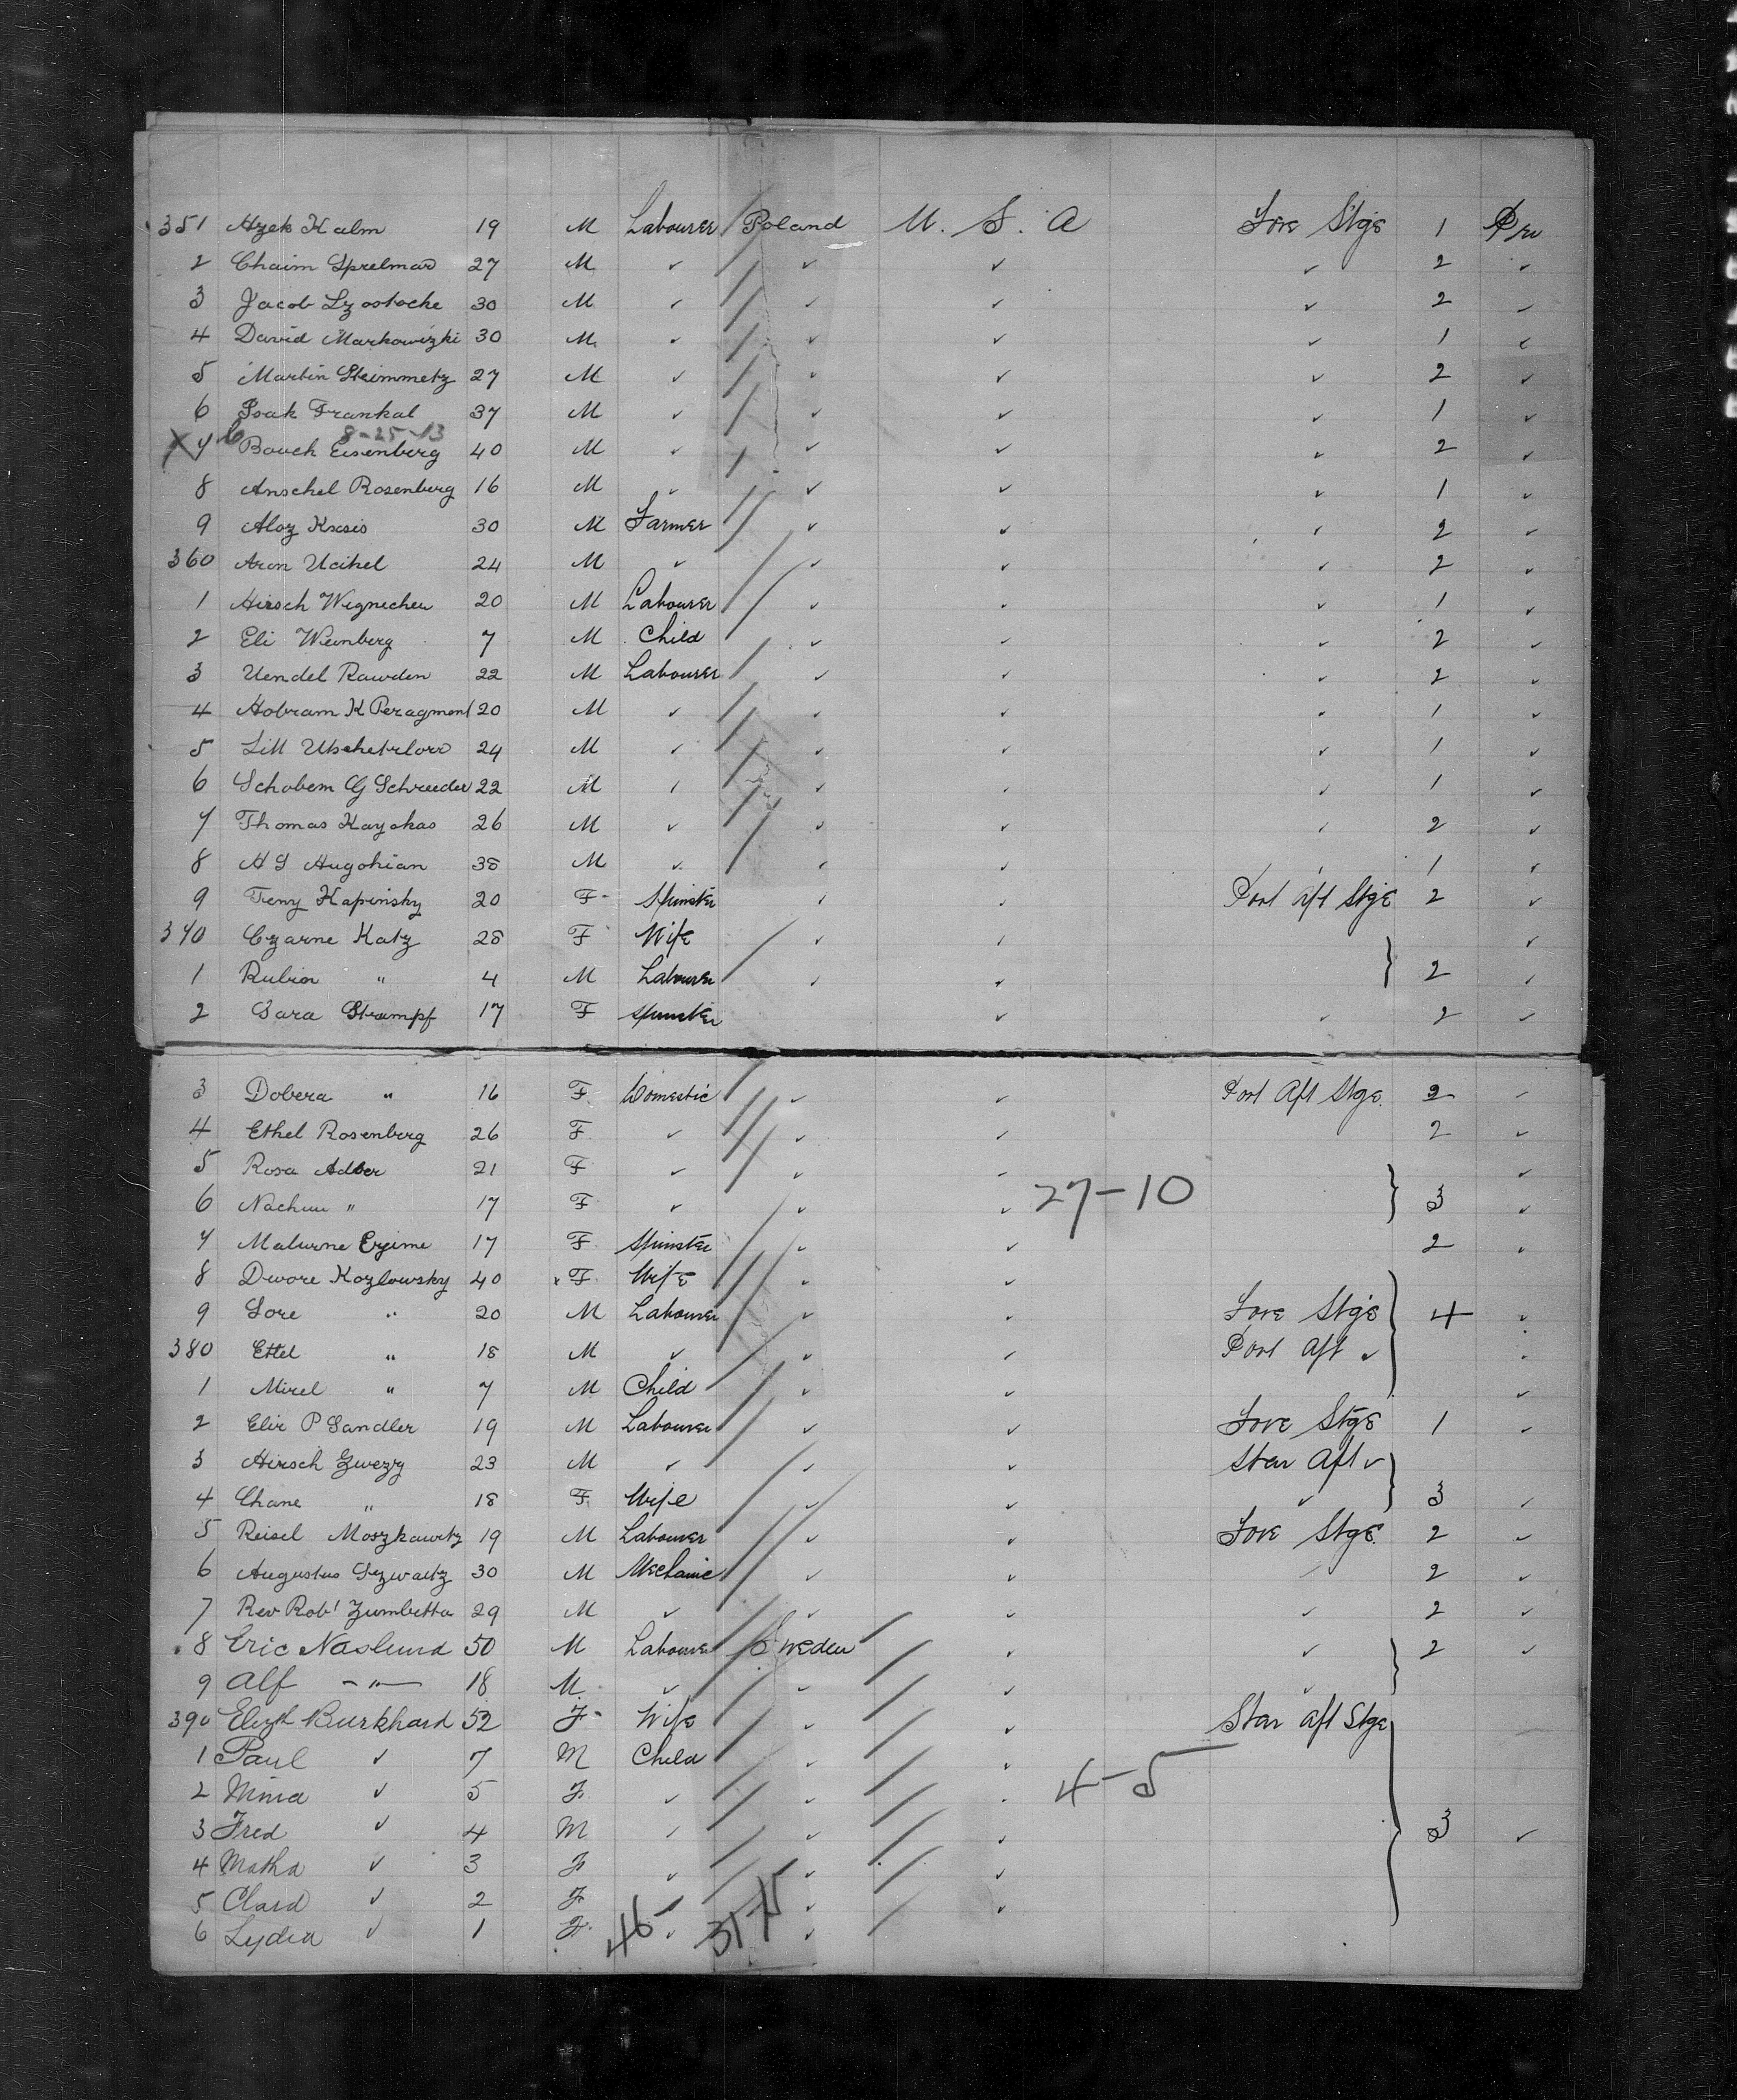 351 Azek Kalm 19 M Labourer Poland U. S. A Fore Stge 1 Pru
2 Chaim Sprelmad 27 M ✓ ✓ ✓ ✓ 2 ✓
3 Jacob Lzostocke 30 M ✓ ✓ ✓ ✓ 2 ✓
4 David Markowizki 30 M ✓ ✓ ✓ ✓ 1 ✓
5 Martin Steimmetz 27 M ✓ ✓ ✓ ✓ 2 ✓
6 Isak Frankal 37 M ✓ ✓ ✓ ✓ 1 ✓
8-25-13
X 7 Bouch Eisenberg 40 M ✓ ✓ ✓ ✓ 2 ✓
8 Anschel Rosenberg 16 M ✓ ✓ ✓ ✓ 1 ✓
9 Aloz 30 M Farmer ✓ ✓ ✓ 2 ✓
360 Aron Ucihel 24 M ✓ ✓ ✓ ✓ 2 ✓
1 Hirsch Wegnechen 20 M Labourer ✓ ✓ ✓ 1 ✓
2 Eli Weinberg 7 M Child ✓ ✓ ✓ 2 ✓
3 Uendel Rawden 22 M Labourer ✓ ✓ ✓ 2 ✓
4 Hobram K Peragment 20 M ✓ ✓ ✓ ✓ 1 ✓
5 24 M ✓ ✓ ✓ ✓ 1 ✓
6 Schobem G Schreeder 22 M ✓ ✓ ✓ ✓ 1 ✓
7 Thomas Kayokas 26 M ✓ ✓ ✓ ✓ 2 ✓
8 H S Hugohian 38 M ✓ ✓ ✓ ✓ 1 ✓
9 Feny Kapinsky 20 F Spinster ✓ ✓ Port Aft Stge 2 ✓
370 Czarne Katz 28 F Wife ✓ ✓ ✓
1 Rubin " 4 M Labourer ✓ ✓ } 2 ✓
2 Sara Strampf 17 F Spinster ✓ ✓ 2 ✓
3 Dobera " 16 F Domestic ✓ ✓ Port Aft Stge. 2 ✓
4 Ethel Rosenberg 26 F ✓ ✓ ✓ 2 ✓
5 Rosa Adler 21 F ✓ ✓ ✓ ✓
6 Nachum " 17 F ✓ ✓ ✓ 27-10 } 3 ✓
7 Malurne Ezime 17 F Spinster ✓ ✓ 2 ✓
8 Dwore Kozlowsky 40 F Wife ✓ ✓
9 Sore " 20 M Labourer ✓ ✓ Fore Stge } 4 ✓
380 Ettel " 18 M ✓ ✓ ✓ Port Aft ✓ ✓
1 Mirel " 7 M Child ✓ ✓ ✓
2 Elir P Sandler 19 M Labourer ✓ ✓ Fore Stge 1 ✓
3 Hirsch Zwezy 23 M ✓ ✓ ✓ Star Aft ✓
4 Chane " 18 F Wife ✓ ✓ ✓ } 3 ✓
5 Reisel Moszkawitz 19 M Labourer ✓ ✓ Fore Stge. 2 ✓
6 Augustus Szwartz 30 M Mechanic ✓ ✓ ✓ 2 ✓
7 Rev Robt Zumbetta 29 M ✓ ✓ ✓ ✓ 2 ✓
8 Eric Naslund 50 M Labourer Sweden ✓ ✓ } 2 ✓
9 Alf -"- 18 M ✓ ✓ ✓ ✓
390 Elizth Burkhard 52 F Wife ✓ ✓ Star Aft Stge
1 Paul ✓ 7 M Child ✓ ✓
2 Minia ✓ 5 F ✓ ✓ ✓ 4-5
3 Fred ✓ 4 M ✓ ✓ ✓ } 3 ✓
4 Matha ✓ 3 F ✓ ✓ ✓
5 Clard ✓ 2 F ✓ ✓
6 Lydia ✓ 1 F ✓ ✓
46-